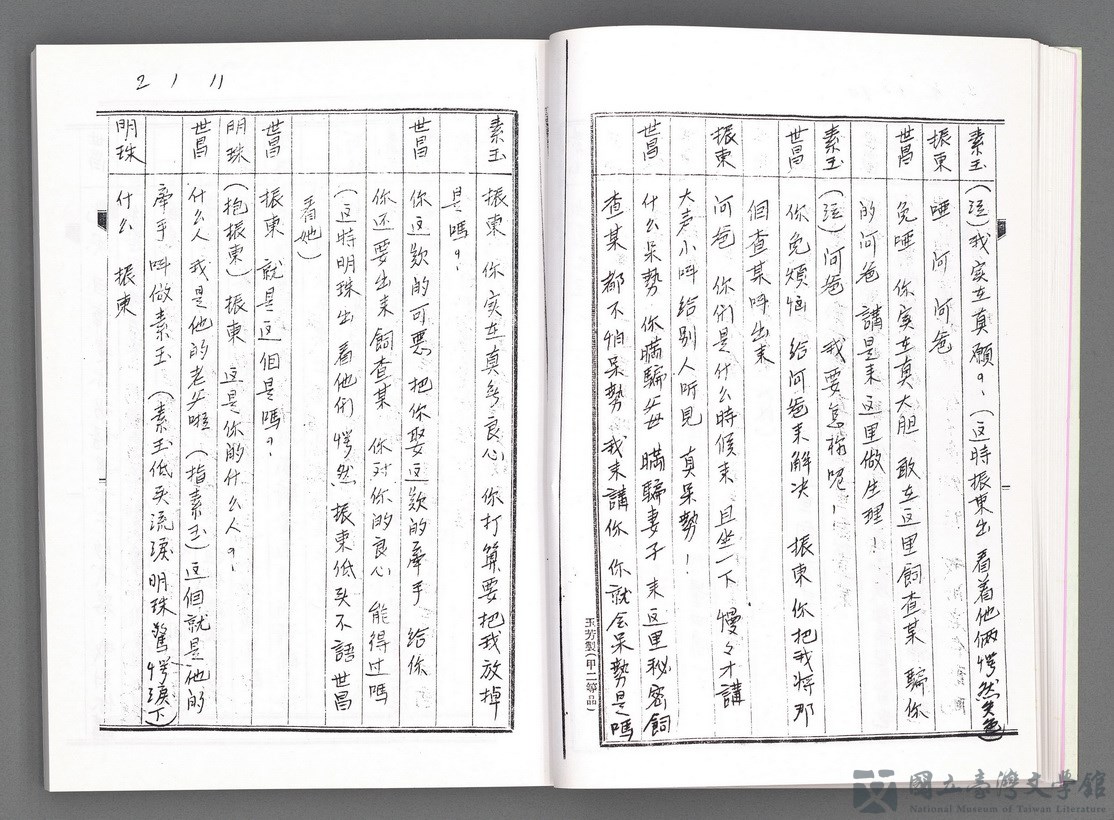 素玉 (泣)我实在真願9, (这時振東出 看着他倆愕然失色)
振東 唖 阿 阿爸
世昌 免唖 你实在真大胆 敢在这里飼查某 騙你
的阿爸 講是来这里做生理!
素玉 (泣)阿爸 我要怎樣呢!
世昌 你免煩悩 給阿爸来解决 振東你把我将那
個查某叫出来
振東 阿爸 你們是什么時候来 且坐一下 慢々才講
大声小叫給别人听見 真呆勢!
世昌 什么呆勢 你瞞騙父母 瞞騙妻子 来这里秘密飼
查某 都不怕呆勢 我来講你 你就会呆勢是嗎
玉芳製(甲二等品)
2 1 11
素玉 振東 你实在真無良心 你打算要把我放掉
是嗎9,
世昌 你这欵的可惡 把你娶这欵的牽手 給你
你还要出来飼查某 你对你的良心 能得过嗎
(这時明珠出 看他們 愕然 振東低头不語 世昌
看她)
世昌 振東 就是这個是嗎9,
明珠 (抱振東) 振東 这是你的什么人9,
世昌 什么人 我是他的老父啦 (指素玉)这個就是他的
牽手 叫做素玉 (素玉低头流淚 明珠驚愕淚下)
明珠 什么 振東
國立臺灣文學館
National Museum of Taiwan Literature